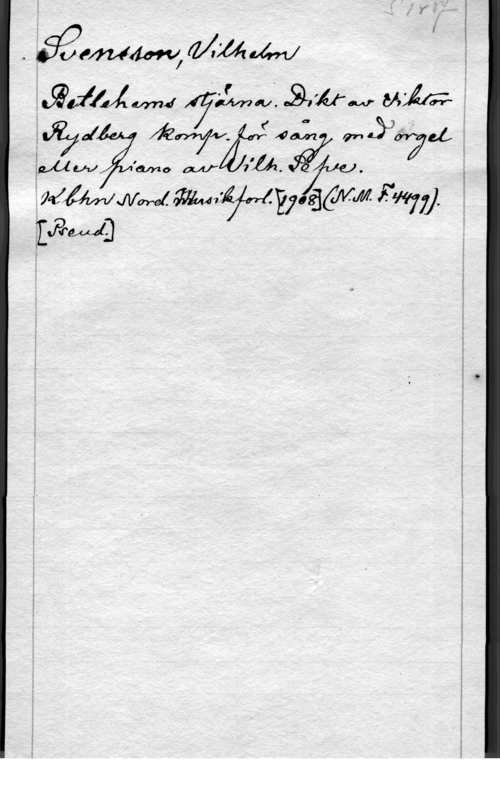 Svensson, Vilhelm
Betlehems stjärna. Dikt av Viktor
Rydberg komp. för sång med orgel
eller piano av Vilh. Sefve.
Kbhn Nord. Musikforl. [1908] (N.M. F. 4499).
[Pseud]